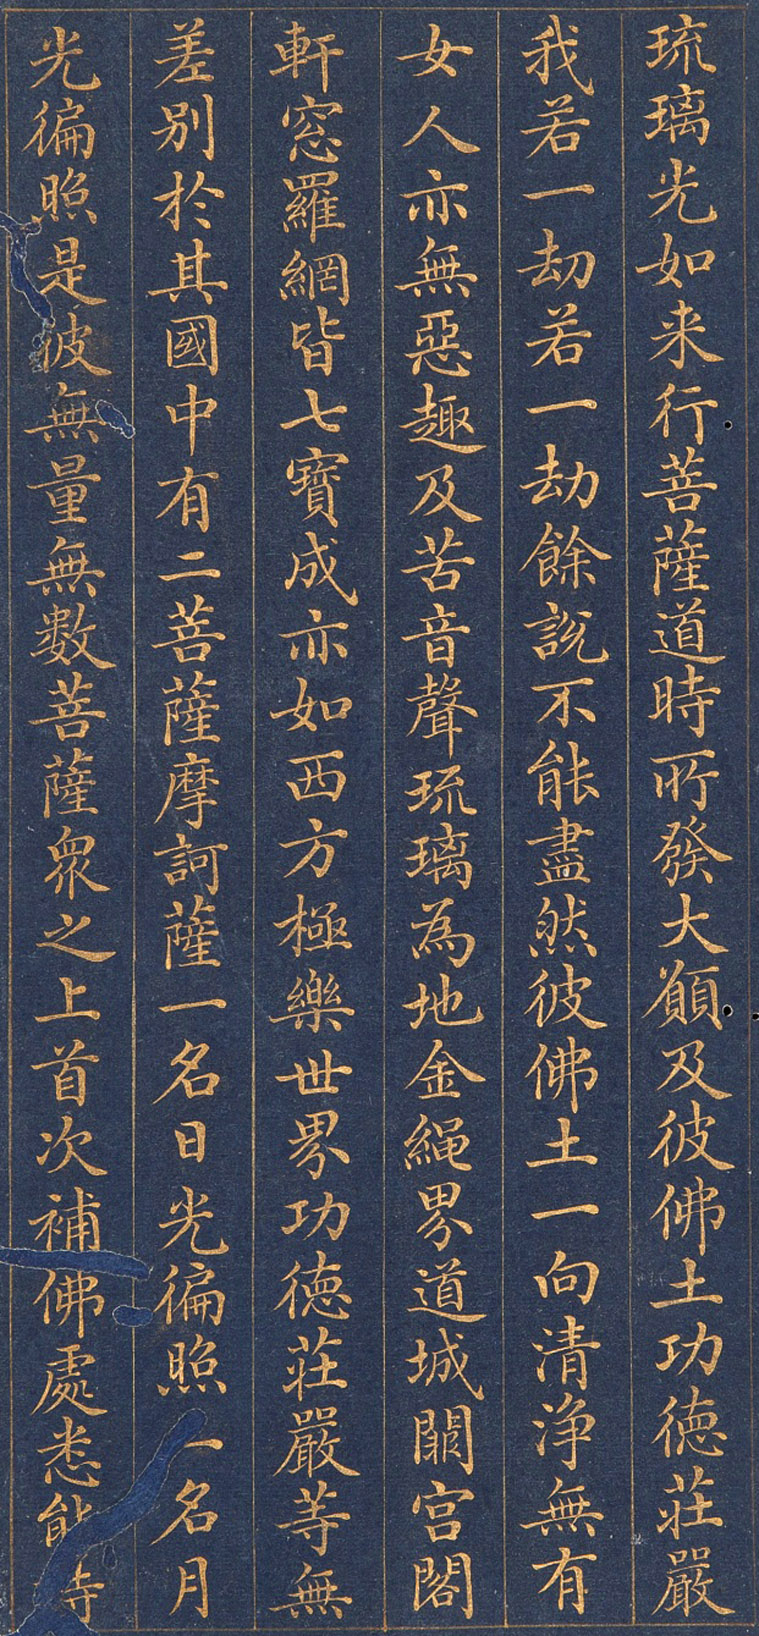 琉璃光如来行菩薩道時所發大願及彼佛土功徳莊嚴
我若一劫若一劫餘説不能盡然彼佛土一向清淨無有
女人亦無惡趣及苦音聲琉璃為地金繩界道城闕宮閣
軒窓羅網皆七寳成亦如西方極樂世界功徳莊嚴等無
差別於其國中有二菩薩摩訶薩一名日光徧照一名月
光徧照是彼無量無数菩薩衆之上首次補佛處悉能持